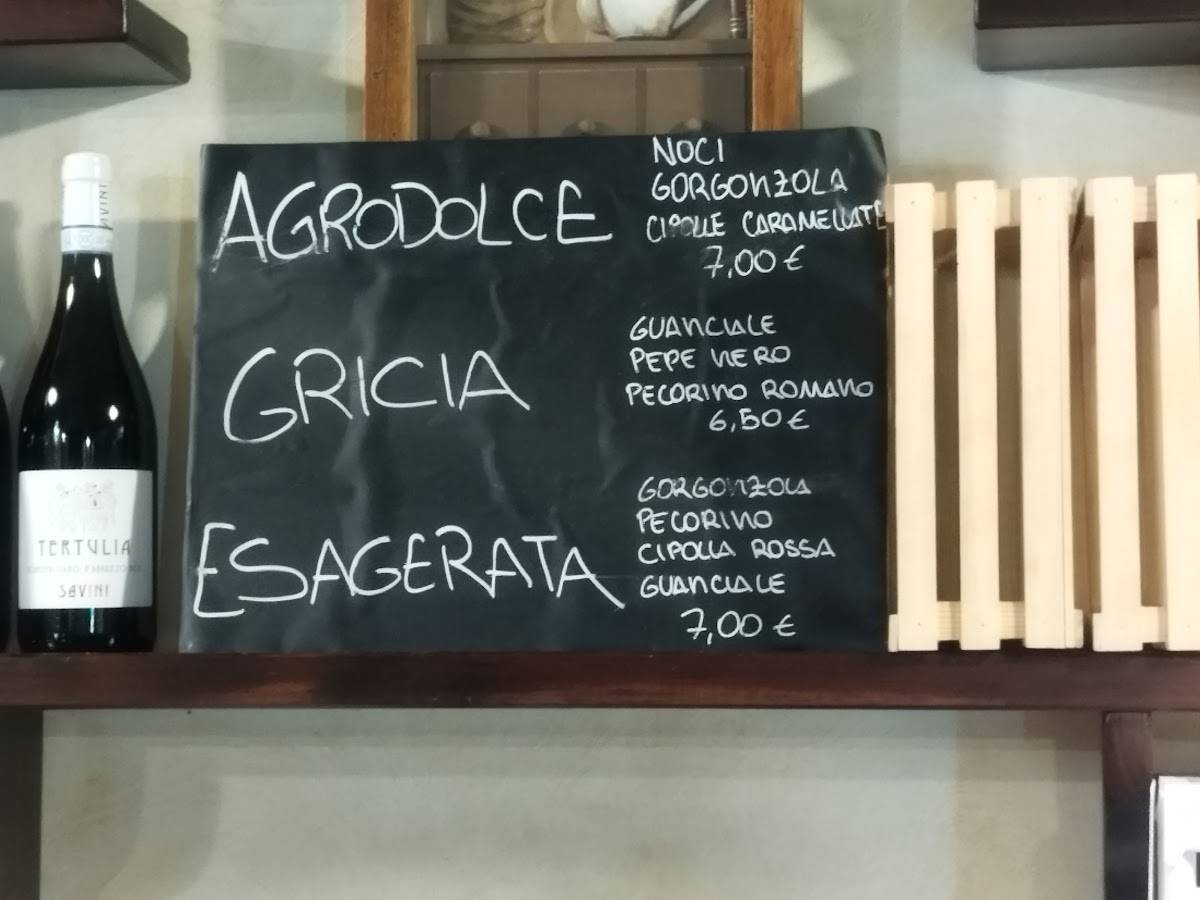 AGRODOLCE
NOCI
GORGONZOLA
CIPOLLE CARAMELLATE
7,00 €
GRICIA
GUANCIALE
PEPE NERO
PECORINO ROMANO
6,50 €
ESAGERATA
GORGONZOLA
PECORINO
CIPOLLA ROSSA
GUANCIALE
7,00 €
SAVINI
TERTULIA
SAVINI